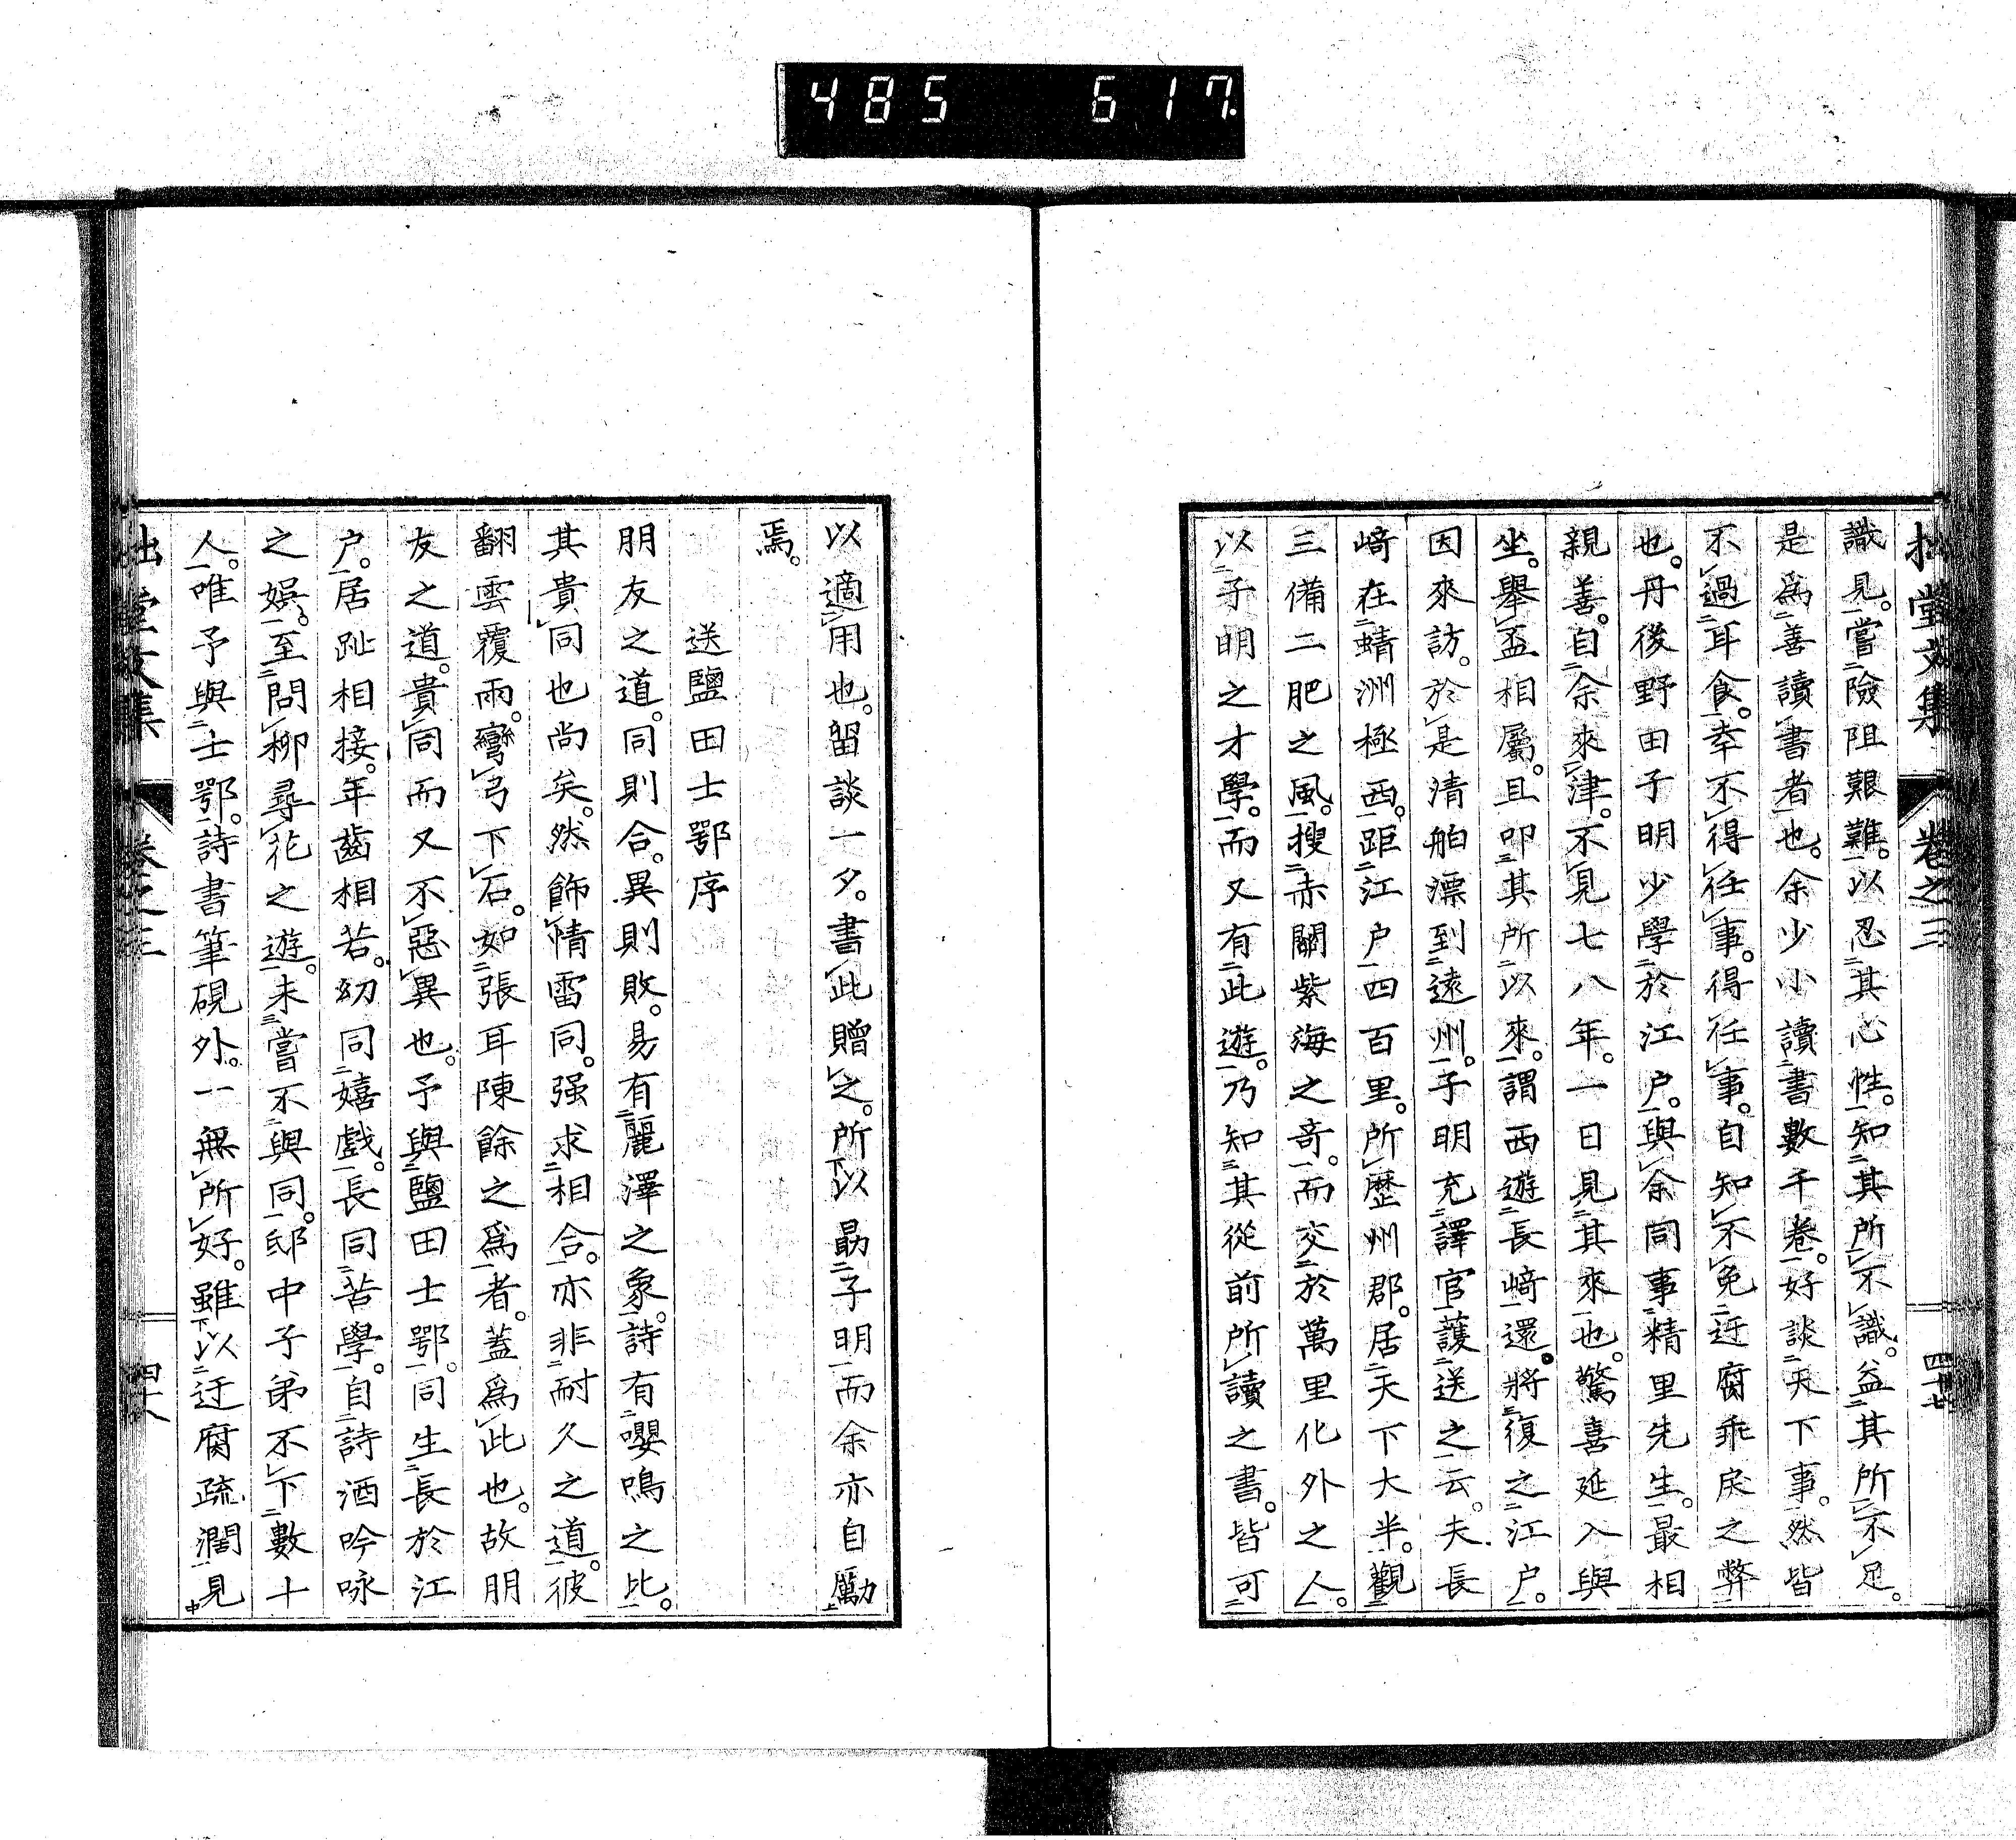 485 617
拙堂文集 卷之三 四十七
識見。嘗險阻艱難。以忍其心性。知其所不識。益其所不足。
是爲善讀書者也。余少小讀書數千卷。好談天下事。然皆
不過耳食。幸不得任事。得任事。自知不免迂腐乖戾之弊
也。丹後野田子明少學於江戶。與余同事精里先生。最相
親善。自余來津。不見七八年。一日見其來也。驚喜延入與
坐。舉盃相屬。且叩其所以來。謂西遊長﨑還。將復之江戶。
因來訪。於是清舶漂到遠州。子明充譯官護送之云。夫長
﨑在蜻洲極西。距江戶四百里。所歷州郡。居天下大半。觀
三備二肥之風。搜赤關紫海之奇。而交於萬里化外之人。
以子明之才學。而又有此遊。乃知其從前所讀之書。皆可
以適用也。留談一夕。書此贈之。所以勗子明而余亦自勵
焉。
送鹽田士鄂序
朋友之道。同則合。異則敗。易有麗澤之象。詩有嚶鳴之比。
其貴同也尚矣。然飾情雷同。强求相合。亦非耐久之道。彼
翻雲覆雨。彎弓下石。如張耳陳餘之爲者。蓋爲此也。故朋
友之道。貴同而又不惡異也。予與鹽田士鄂。同生長於江
戶。居趾相接。年齒相若。幼同嬉戲。長同苦學。自詩酒吟咏
之娛。至問柳尋花之遊。未嘗不與同。邸中子弟不下數十
人。唯予與士鄂。詩書筆硯外。一無所好。雖以迂腐疏濶見
拙堂文集 卷之三 四十八